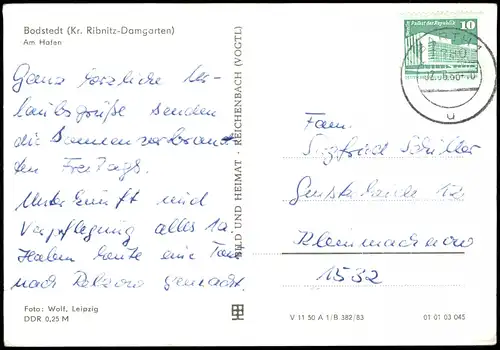 Bodstedt (Kr. Ribnitz-Damgarten)
Am Hafen
Ganz herzliche Ur-
laubsgrüße senden
die Sonnenverbrann-
ten Freitags.
Unterkunft und
Verpflegung alles 1a
Haben heute eine Tour
nach gemacht.
Foto: Wolf, Leipzig
DDR 0,25 M
BILD UND HEIMAT · REICHENBACH (VOGTL)
Palast der Republik
10
DDR
u
Fam.
Siegfried Schüller
12
Kleinmachnow
1532
V 11 50 A 1/B 382/83
01 01 03 045